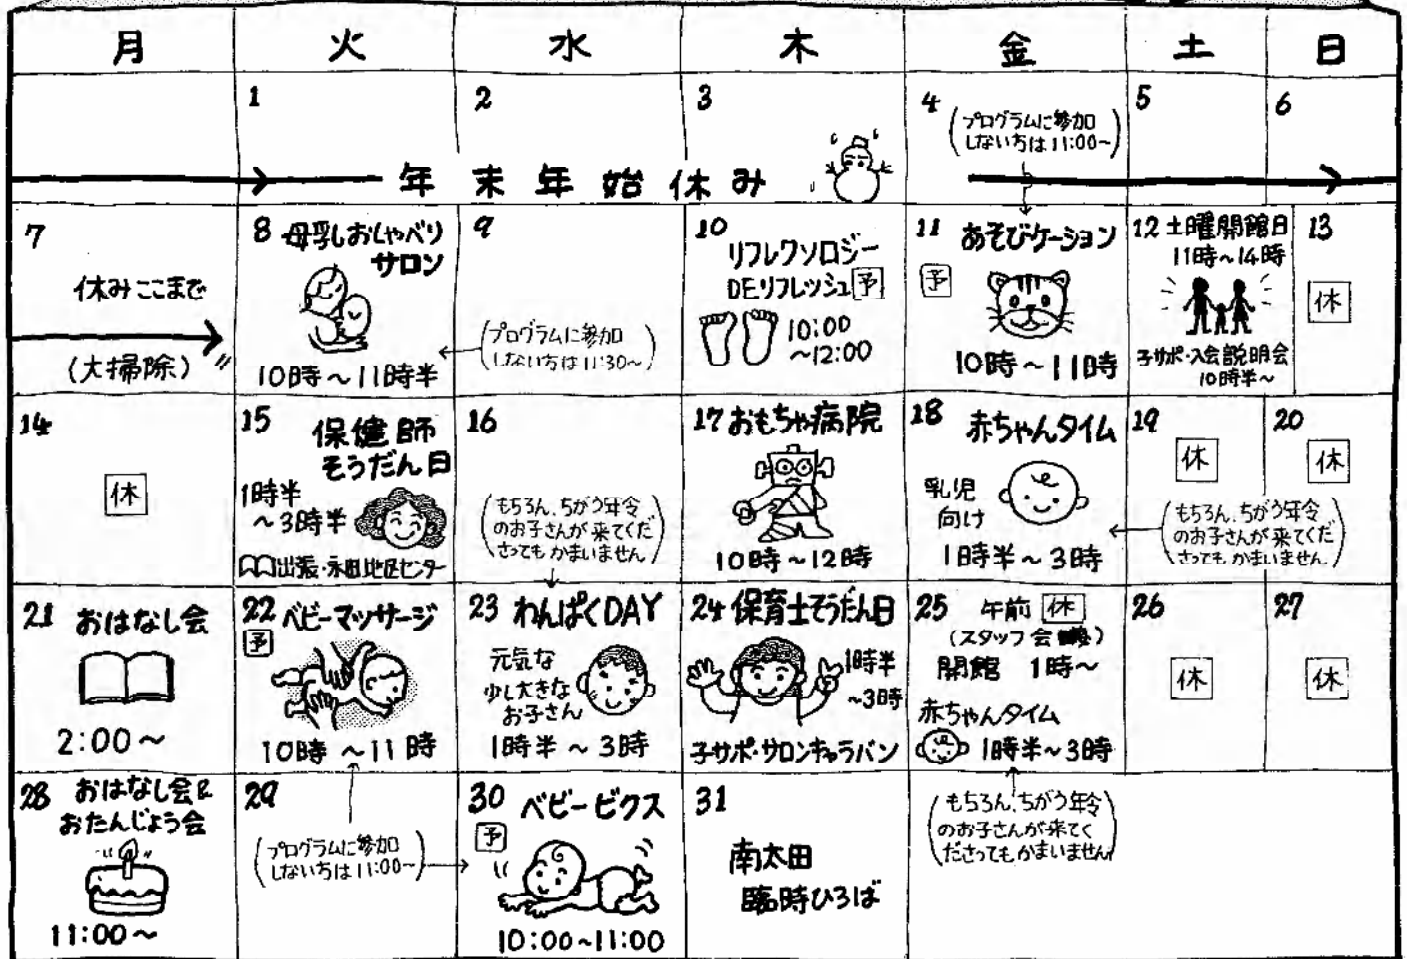 月 火 水 木 金 土 日
1
2
3
4
(プログラムに参加
しない方は11:00~)
5
6
年末年始休み
7
休みここまで
(大掃除)
8 母乳おしゃべり
サロン
10時~11時半
9
(プログラムに参加
しない方は11:30~)
10
リフレクソロジー
DEリフレッシュ 予
10:00
~12:00
11 あそびケーション
予
10時~11時
12 土曜開館日
11時~14時
子サポ・入会説明会
10時半~
13
休
14
休
15 保健師
そうだん日
1時半
~3時半
出張・永田地区センター
16
(もちろん、ちがう年令
のお子さんが来てくだ
さってもかまいません)
17 おもちゃ病院
10時~12時
18 赤ちゃんタイム
乳児
向け
1時半~3時
19
休
20
休
(もちろん、ちがう年令
のお子さんが来てくだ
さってもかまいません)
21 おはなし会
2:00~
22 ベビーマッサージ
予
10時~11時
23 わんぱくDAY
元気な
少し大きな
お子さん
1時半~3時
24 保育士そうだん日
1時半
~3時
子サポ・サロンキャラバン
25 午前 休
(スタッフ会)
開館 1時~
赤ちゃんタイム
1時半~3時
26
休
27
休
28 おはなし会&
おたんじょう会
11:00~
29
(プログラムに参加
しない方は11:00~)
30 ベビービクス
予
10:00~11:00
31
南太田
臨時ひろば
(もちろん、ちがう年令
のお子さんが来てく
ださってもかまいません)